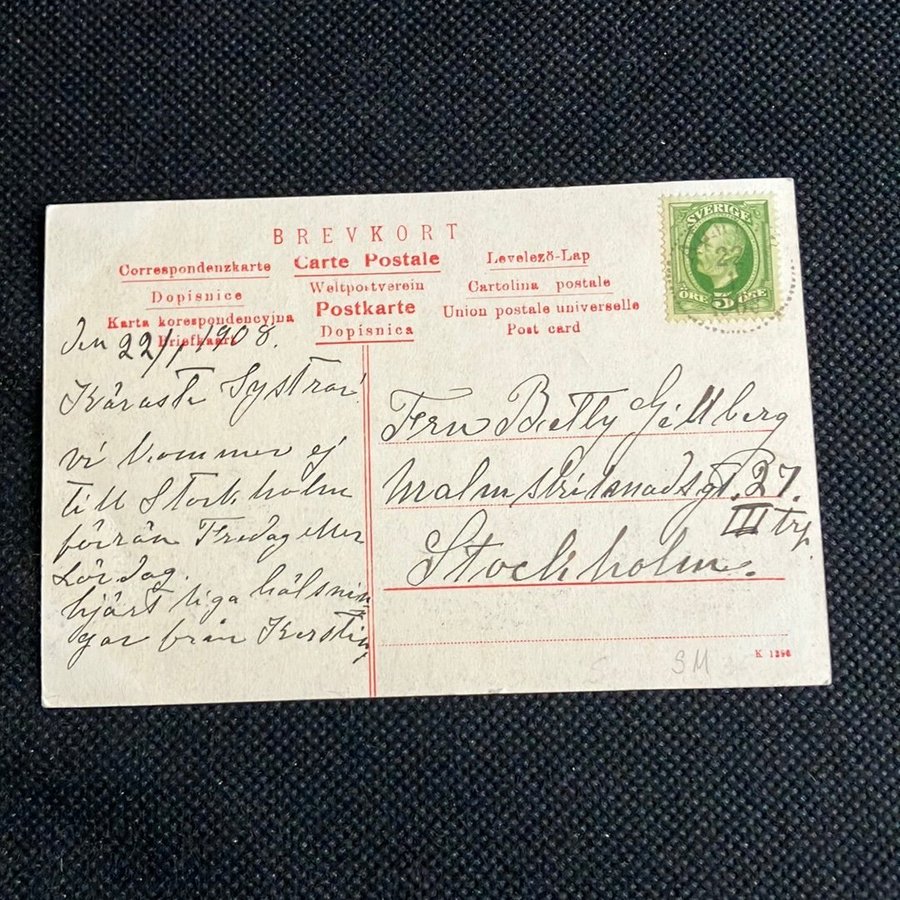 BREVKORT
Correspondenzkarte
Carte Postale
Levelező-Lap
Dopisnice
Weltportverein
Cartolina postale
Karta korespondencyjna
Postkarte
Union postale universelle
Briefkaart
Dopisnica
Post card
SVERIGE
ÖRE 5 ÖRE
Den 22/1 1908.
Käraste Systrar!
vi kommer ej
till Stockholm
förrän Fredag eller
Lördag.
hjärtliga hälsnin
gar från Kerstin
Fru Betty Gillberg
Malmskilnadsgt. 27.
III trp.
Stockholm.
K. 1296
SM